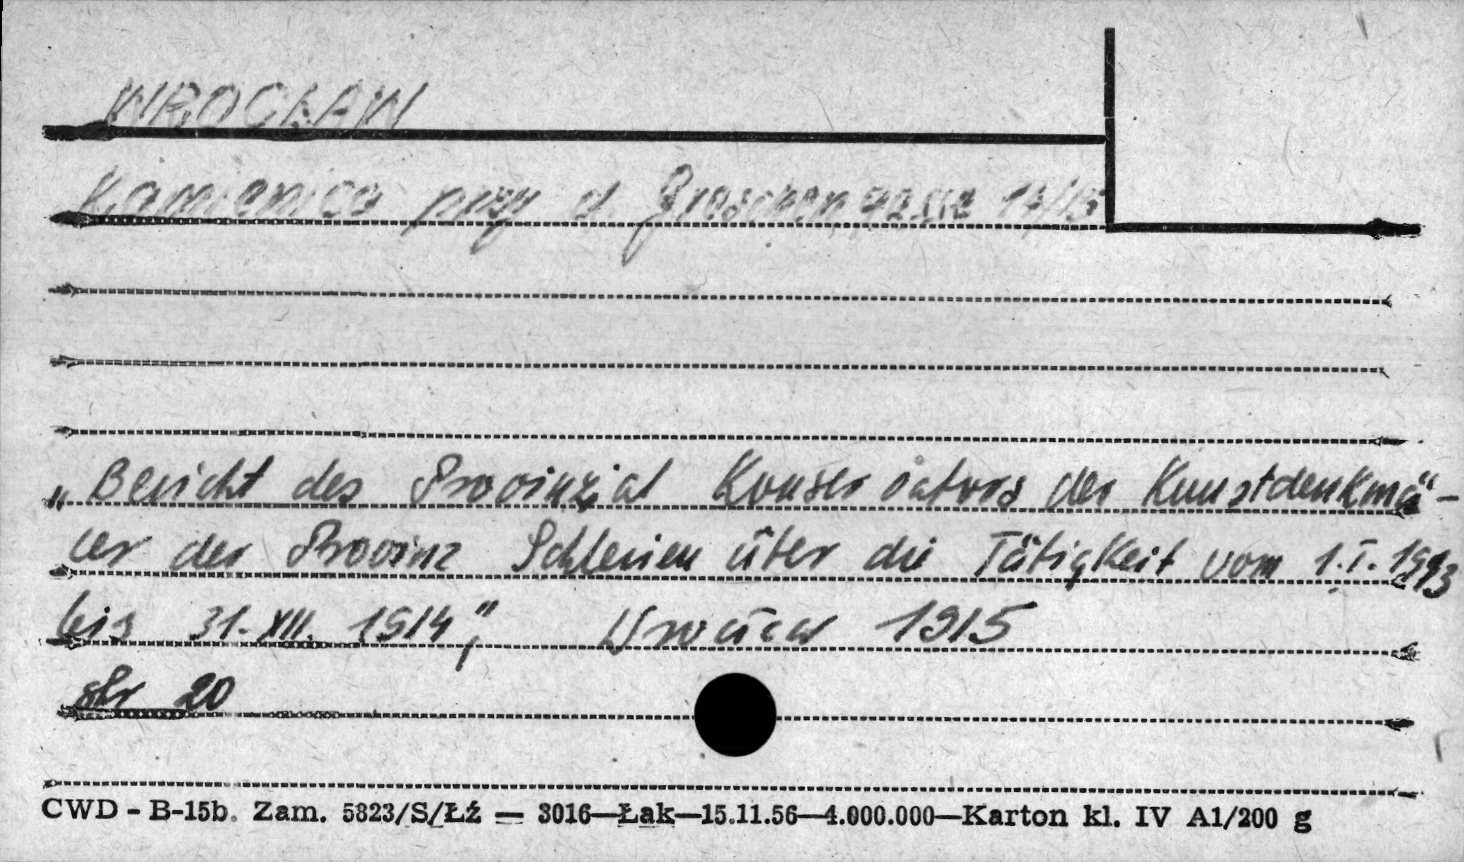 WROCŁAW
Kamienica przy ul. Groschengasse 14/15
„Bericht des Provinzial Konservators der Kunstdenkmä-
ler der Provinz Schlesien über die Tätigkeit vom 1.I.1913
bis 31.XII.1914", Wrocław 1915
str 20
CWD - B-15b. Zam. 5823/S/ŁŹ — 3016—Łak—15.11.56—4.000.000—Karton kl. IV A1/200 g